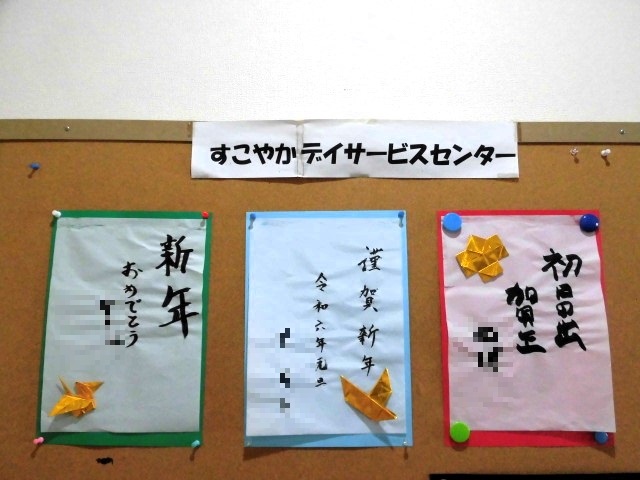 すこやかデイサービスセンター
新年
おめでとう
謹賀新年
令和六年元旦
初日の出